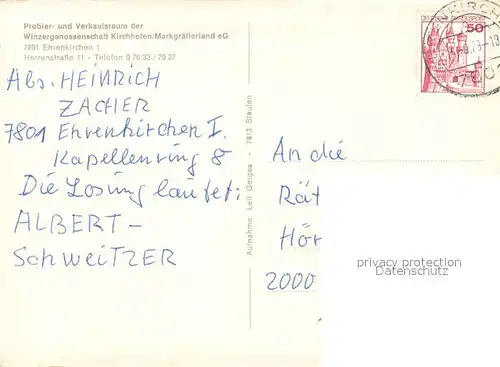 Probier- und Verkaufsraum der
Winzergenossenschaft Kirchhofen/Markgräflerland eG
7801 Ehrenkirchen 1
Herrenstraße 11 - Telefon 0 76 33 / 70 22
Abs. HEINRICH
ZACHER
7801 Ehrenkirchen I.
Kapellenring 8
Die Losung lautet:
ALBERT-
SCHWEITZER
Aufnahme Leif Geiges - 7813 Staufen
DEUTSCHE BUNDESPOST
50
An die
Rät
Hör
2000
privacy protection
Datenschutz